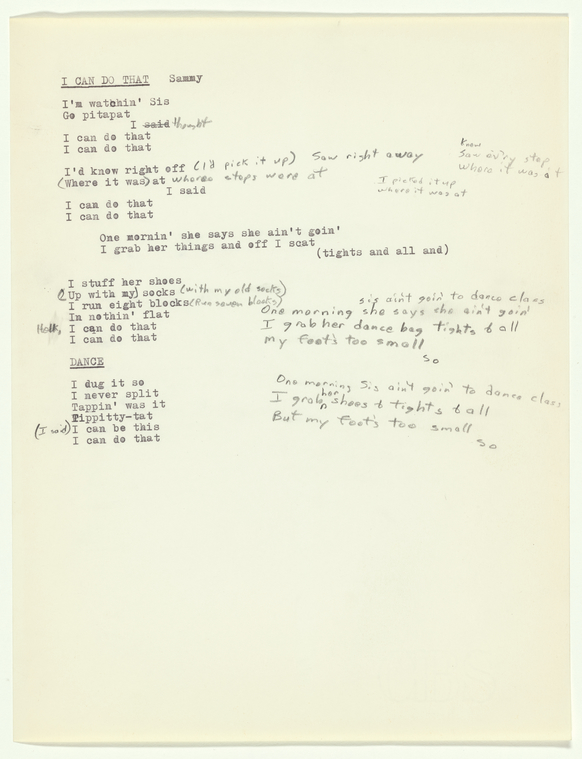 I CAN DO THAT   Sammy
I'm watchin' Sis
Go pitapat
I said thought
I can do that
I can do that
Know
Saw ev'ry step
Where it was at
I'd know right off (I'd pick it up)   Saw right away
(Where it was) at   steps were at
I picked it up
where it was at
I said
I can do that
I can do that
One mornin' she says she ain't goin'
I grab her things and off I scat
(tights and all and)
I stuff her shoes
Up with my socks (with my old socks)
I run eight blocks (Run seven blocks)
In nothin' flat
Heck, I can do that
I can do that
sis ain't goin' to dance class
One morning she says she ain't goin'
I grab her dance bag tights & all
my foot's too small
so
DANCE
I dug it so
I never split
Tappin' was it
Tippitty-tat
(I said) I can be this
I can do that
One morning Sis ain't goin' to dance class
I grab her shoes & tights & all
But my foot's too small
so